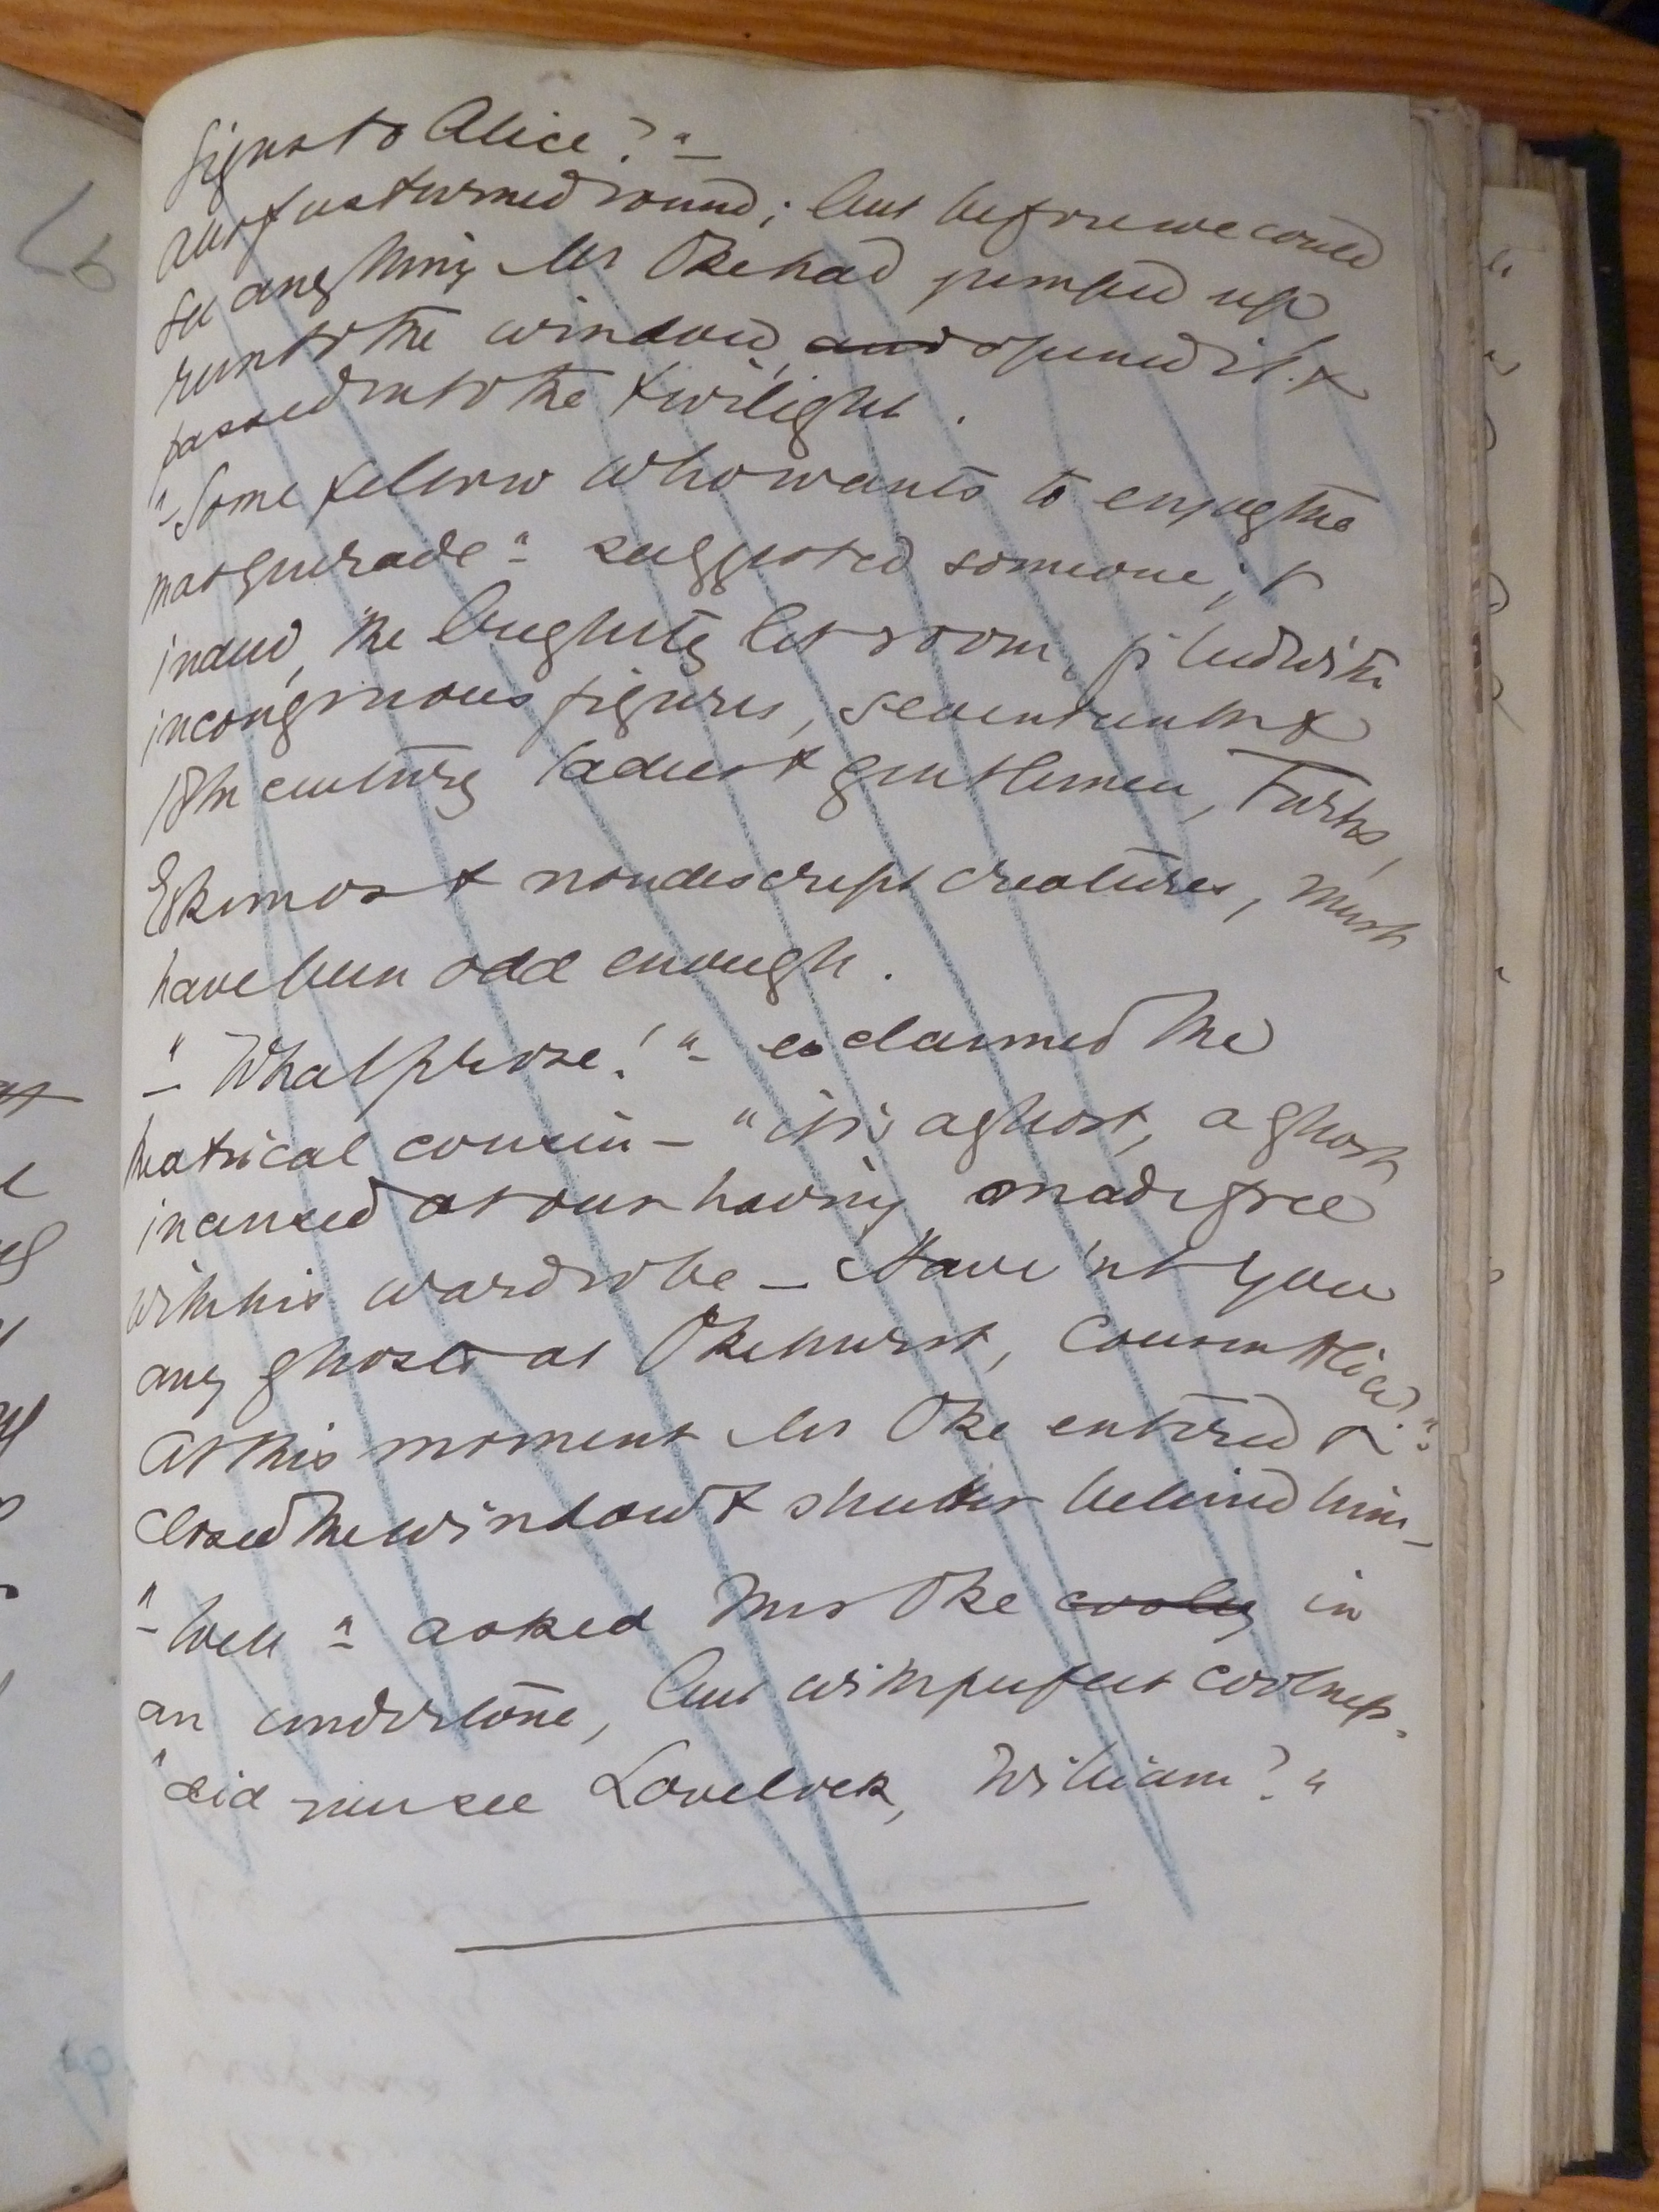 signs to Alice?"
All of us turned round; but before we could
see anything Mr Oke had jumped up
run to the window, and opened it &
passed into the twilight.
"Some fellow who wants to enjoy the
masquerade" suggested someone; &
indeed, the brightly lit room, filled with
incongruous figures, seventeenth &
18th century ladies & gentlemen, Turks,
Eskimos & nondescript creatures, must
have been odd enough.
"What prose!" exclaimed the
theatrical cousin — "it's a ghost, a ghost
incensed at our having made free
with his wardrobe — Have'nt you
any ghosts at Okehurst, Cousin Alice?"
At this moment Mr Oke entered &
closed the window & shutter behind him —
"Well" asked Mrs Oke cooly in
an undertone, but with perfect coolness.
"did you see Lovelock, William?"